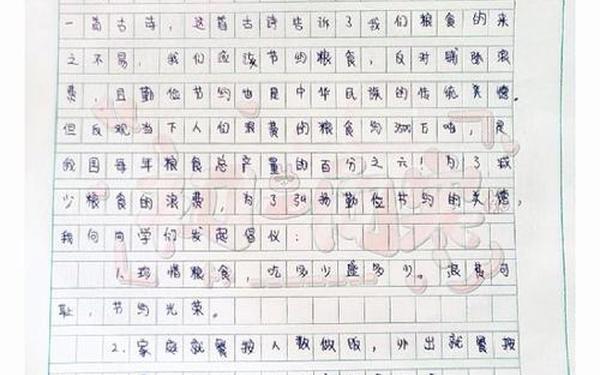 一首古诗，这首古诗告诉了我们粮食的来
之不易，我们应该节约粮食，反对铺张浪
费，且勤俭节约也是中华民族的传统美德。
但反观当下人们浪费的粮食约3500万吨，是
我国每年粮食总产量的百分之六！为了减
少粮食的浪费，为了弘扬勤俭节约的美德，
我向同学们发起倡仪：
1.珍惜粮食，吃多少盛多少。浪费可
耻，节约光荣。
2.家庭就餐按人数做饭，外出就餐按